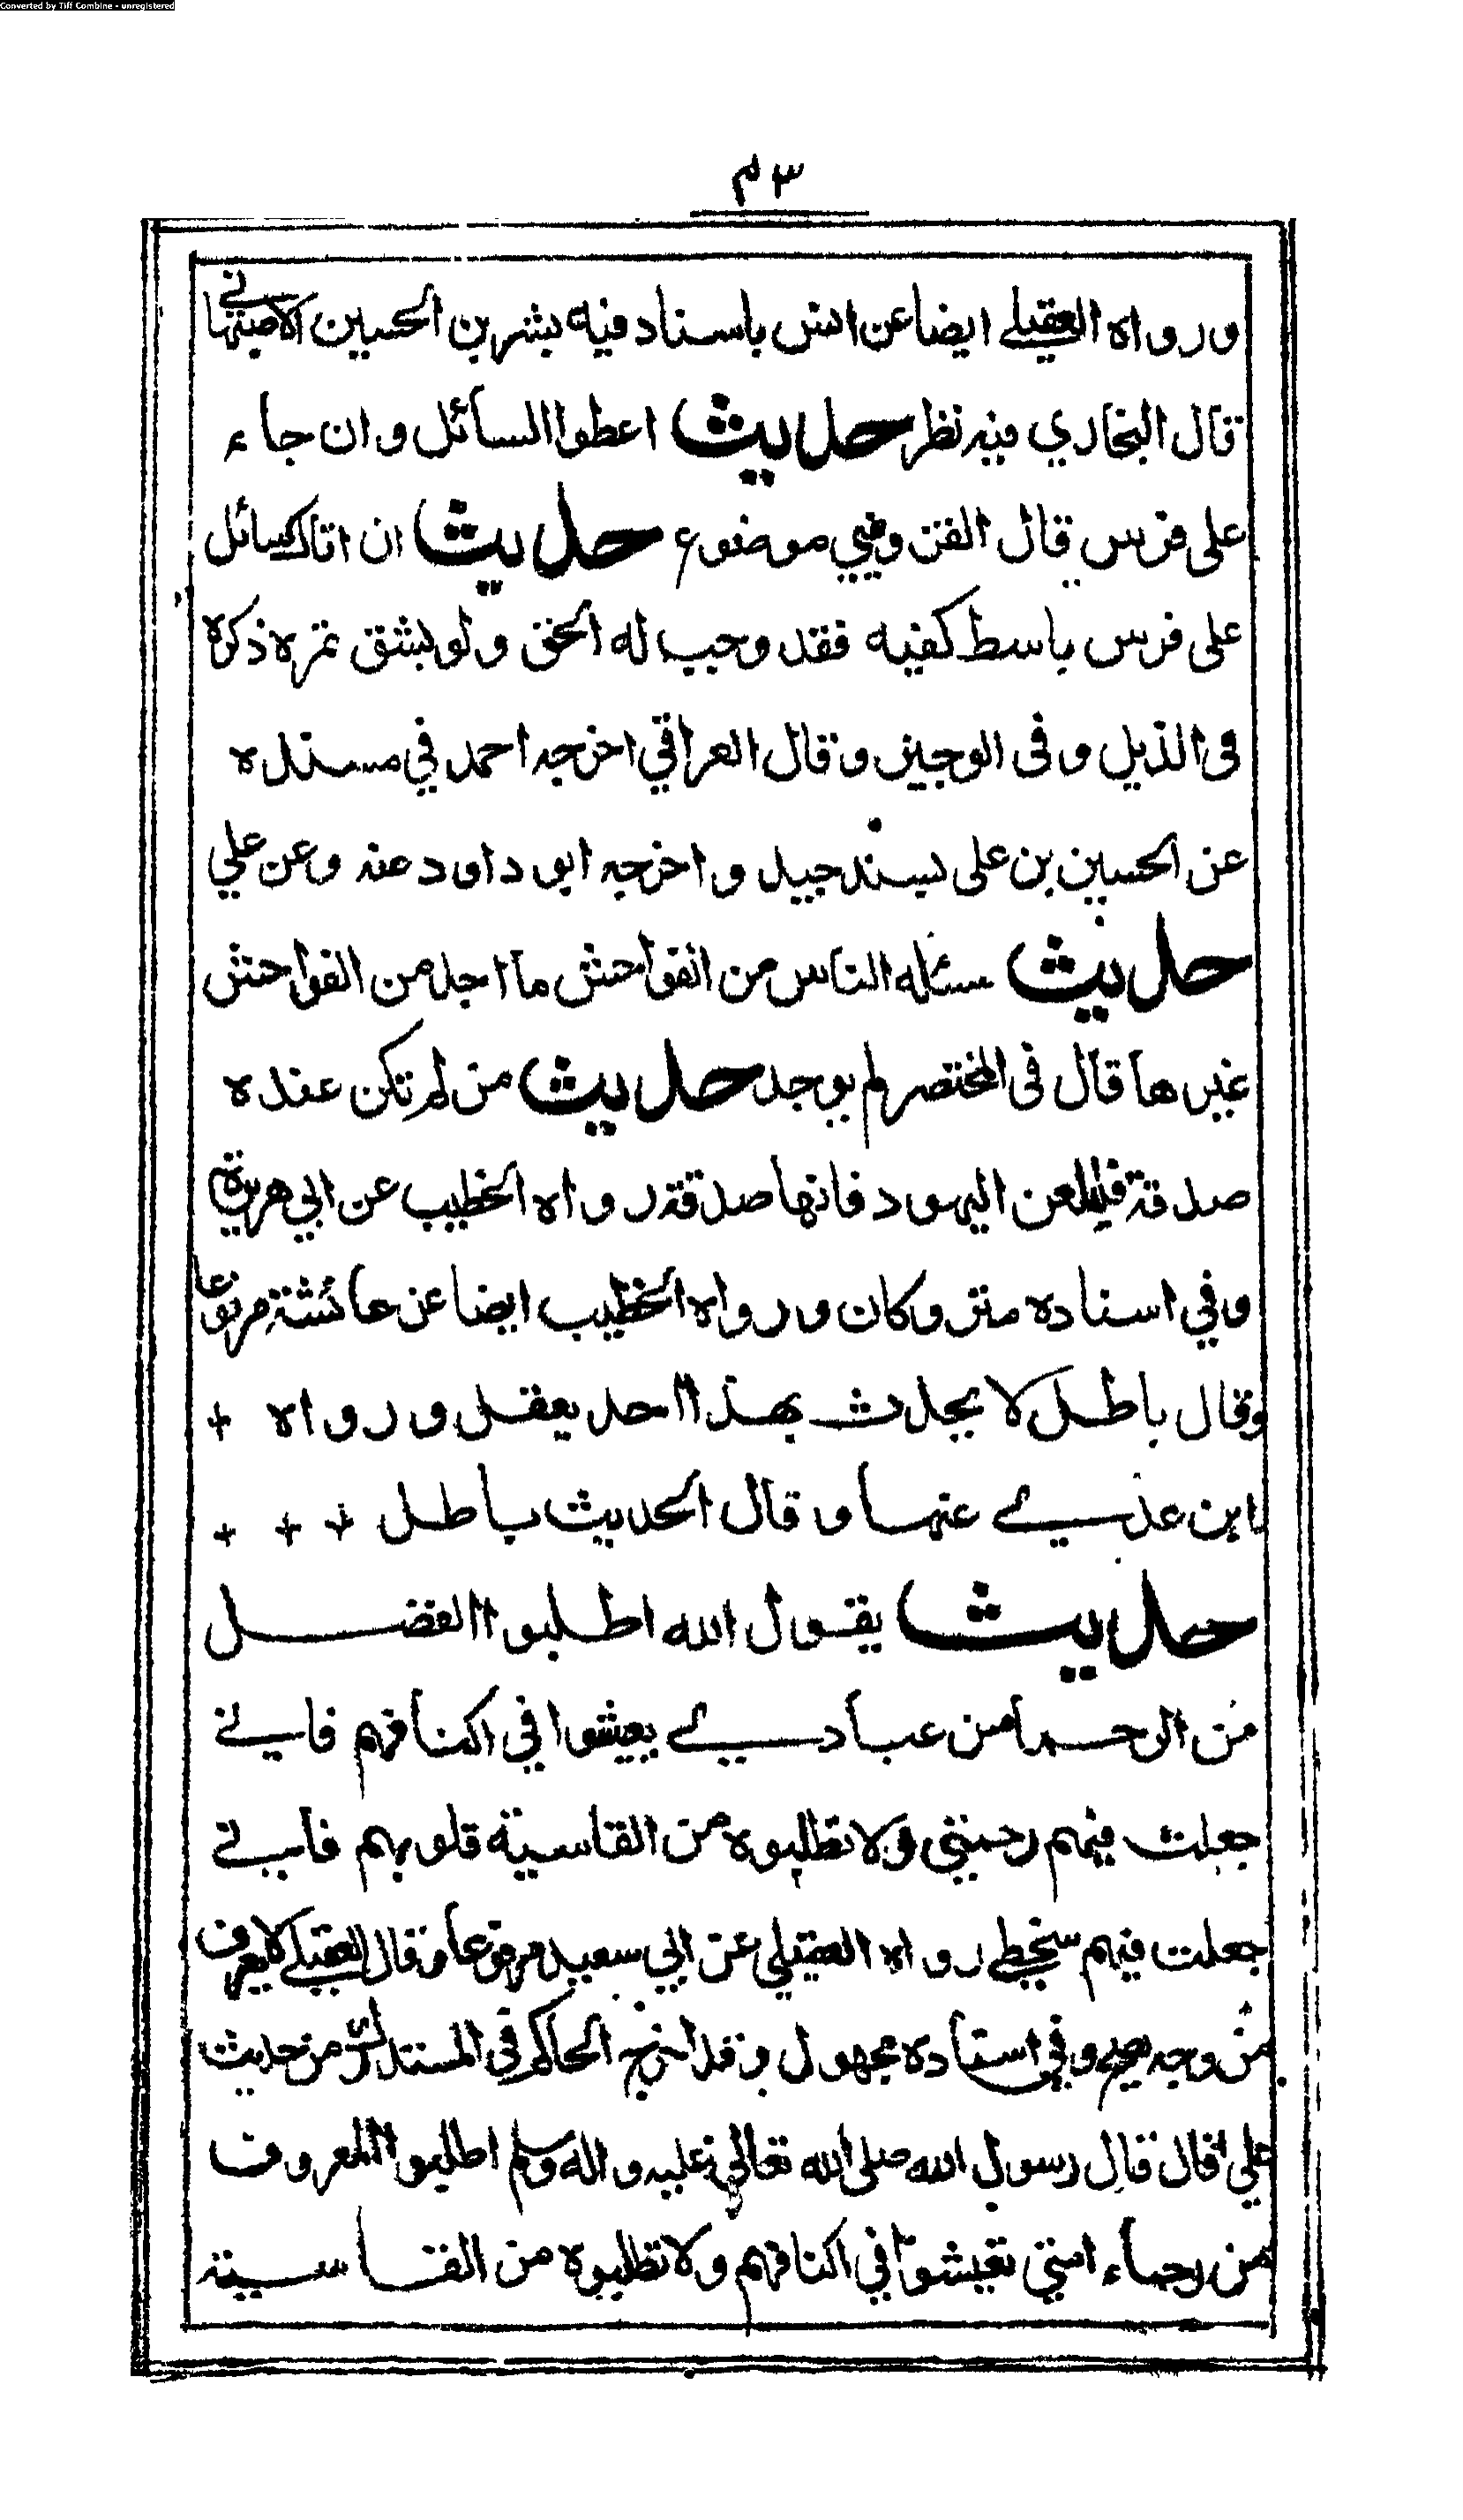 Converted by Tiff Combine - unregistered
٣م
ورواه العقيلے ايضا عن انس باسناد فيه بشر بن الحسين الاصبهانے
قال البخاري فيه نظر حديث اعطوا السائل وان جاء
على فرس قال القزويني موضوع حديث ان اتاك سائل
على فرس باسط كفيه فقد وجب له الحق ولو بشق تمرة ذكره
فى الذيل و فى الوجيز وقال العراقي اخرجه احمد في مسنده
عن الحسين بن على بسند جيد واخرجه ابو داود عنه وعن علي
حديث مسئلة الناس من الفواحش ما احل من الفواحش
غيرها قال فى المختصر لم يوجد حديث من لم تكن عنده
صدقة فليلعن اليهود فانها صدقة رواه الخطيب عن ابي هريرة
وفي اسناده متروكان ورواه الخطيب ايضا عن عائشة مرفوعا
وقال باطل لا يحدث بهذا احد يعقل ورواه +
ابن عدے عنها وقال الحديث باطل + + +
حديث يقول الله اطلبوا الفضل
من الرحماء من عبادے يعيشوا في اكنافهم فانے
جعلت فيهم رحمتي ولا تطلبوه من القاسية قلوبهم فانے
جعلت فيهم سخطے رواه العقيلي عن ابي سعيد مرفوعا وقال العقيلے لا يعرف
من وجه صحيح وفي اسناده مجهول وقد اخرجه الحاكم في المستدرك من حديث
علي قال قال رسول الله صلى الله تعالى عليه واله وسلم اطلبوا المعروف
من رحماء امتي تعيشوا في اكنافهم ولا تطلبوه من القاسية